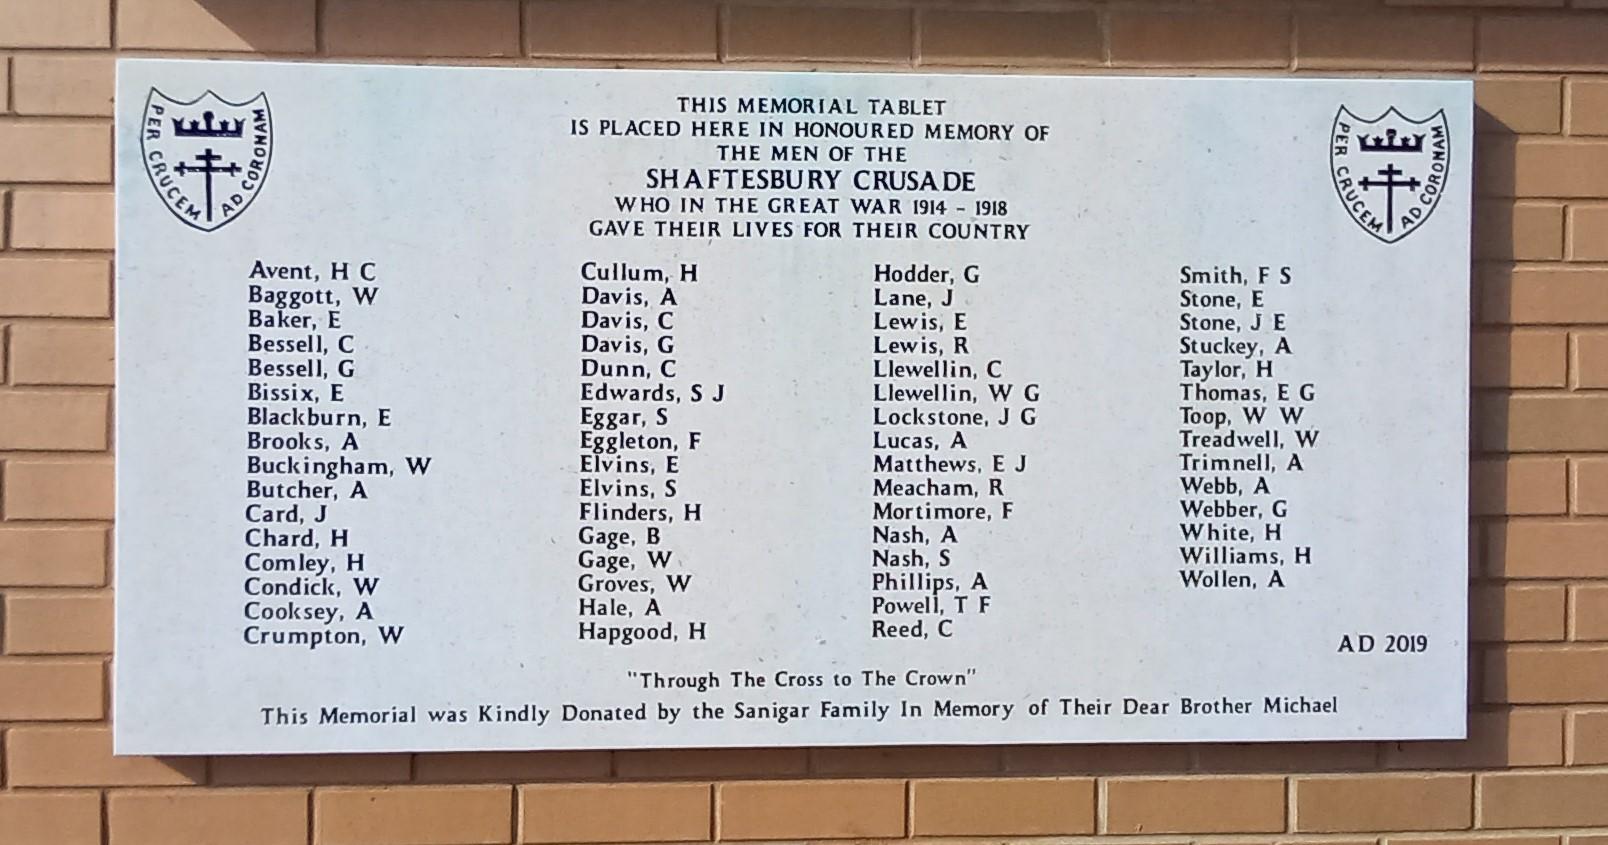 PER CRUCEM AD CORONAM
PER CRUCEM AD CORONAM
THIS MEMORIAL TABLET
IS PLACED HERE IN HONOURED MEMORY OF
THE MEN OF THE
SHAFTESBURY CRUSADE
WHO IN THE GREAT WAR 1914 - 1918
GAVE THEIR LIVES FOR THEIR COUNTRY
Avent, H C
Baggott, W
Baker, E
Bessell, C
Bessell, G
Bissix, E
Blackburn, E
Brooks, A
Buckingham, W
Butcher, A
Card, J
Chard, H
Comley, H
Condick, W
Cooksey, A
Crumpton, W
Cullum, H
Davis, A
Davis, C
Davis, G
Dunn, C
Edwards, S J
Eggar, S
Eggleton, F
Elvins, E
Elvins, S
Flinders, H
Gage, B
Gage, W
Groves, W
Hale, A
Hapgood, H
Hodder, G
Lane, J
Lewis, E
Lewis, R
Llewellin, C
Llewellin, W G
Lockstone, J G
Lucas, A
Matthews, E J
Meacham, R
Mortimore, F
Nash, A
Nash, S
Phillips, A
Powell, T F
Reed, C
Smith, F S
Stone, E
Stone, J E
Stuckey, A
Taylor, H
Thomas, E G
Toop, W W
Treadwell, W
Trimnell, A
Webb, A
Webber, G
White, H
Williams, H
Wollen, A
AD 2019
"Through The Cross to The Crown"
This Memorial was Kindly Donated by the Sanigar Family In Memory of Their Dear Brother Michael